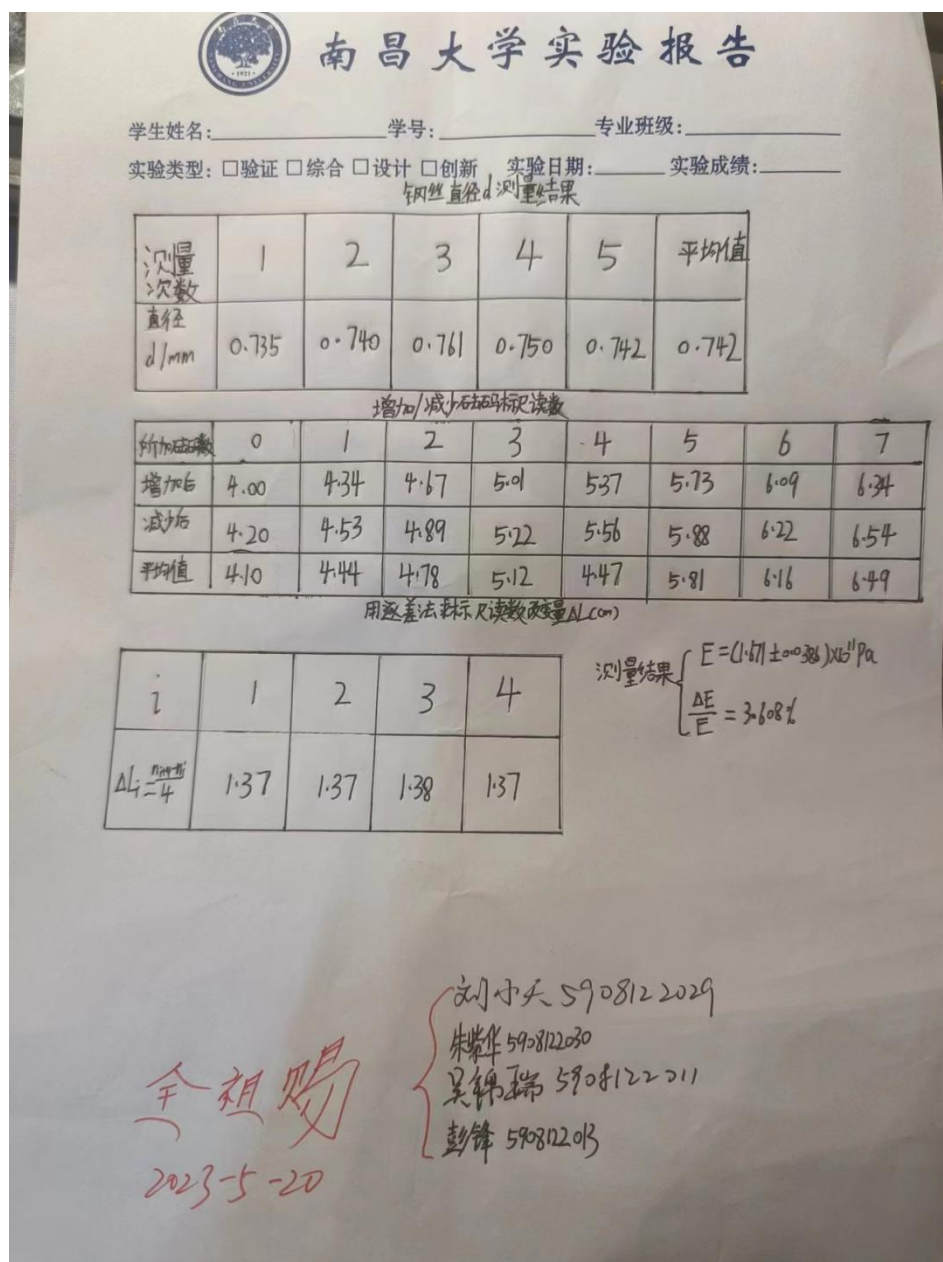 南昌大学实验报告
学生姓名: 学号: 专业班级:
实验类型: □验证 □综合 □设计 □创新 实验日期: 实验成绩:
钢丝直径d测量结果
测量次数 1 2 3 4 5 平均值
直径d/mm 0.735 0.740 0.761 0.750 0.742 0.742
增加/减少砝码标尺读数
所加砝码数 0 1 2 3 4 5 6 7
增加后 4.00 4.34 4.67 5.01 5.37 5.73 6.09 6.34
减少后 4.20 4.53 4.89 5.22 5.56 5.88 6.22 6.54
平均值 4.10 4.44 4.78 5.12 4.47 5.81 6.16 6.49
用逐差法求标尺读数改变量ΔL(cm)
i 1 2 3 4
ΔLi= 4 1.37 1.37 1.38 1.37
测量结果
E=(1.671±0.0386)×10¹¹Pa
ΔE/E=3.608%
刘小天 5908122029
朱紫华 5908122030
吴锦瑞 5908122011
彭锋 5908122013
全祖赐
2023-5-20